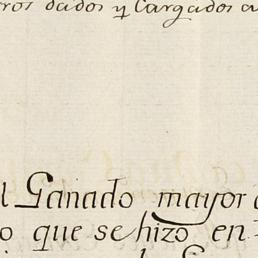 dados y Cargados
l Ganado mayor
o que se hizo en